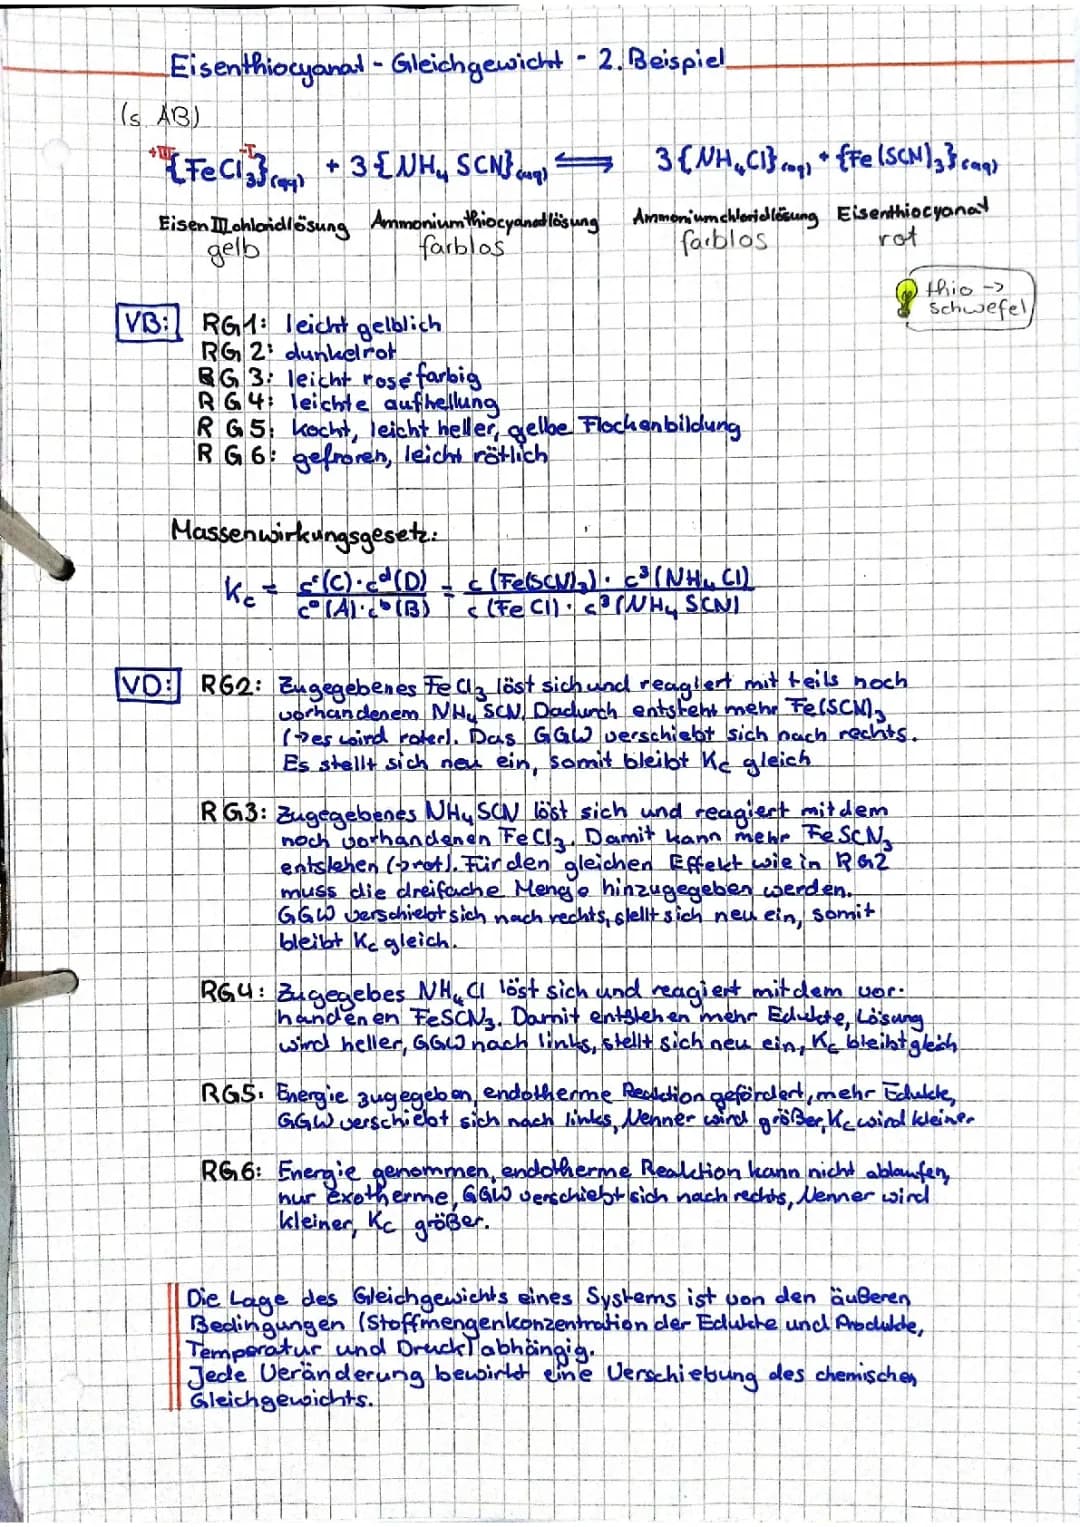 Eisenthiocyanat - Gleichgewicht - 2. Beispiel
(s. AB)
+III -I
{FeCl₃}(aq) + 3 {NH₄ SCN}(aq) ⇌ 3 {NH₄Cl}(aq) + {Fe(SCN)₃}(aq)
Eisen III chloridlösung Ammoniumthiocyanatlösung Ammoniumchloridlösung Eisenthiocyanat
gelb farblos farblos rot
thio ->
schwefel
VB: RG1: leicht gelblich
RG 2: dunkelrot
RG 3: leicht roséfarbig
RG4: leichte aufhellung
RG5: kocht, leicht heller, gelbe Flockenbildung
RG6: gefroren, leicht rötlich
Massenwirkungsgesetz:
Kc = cᶜ(C)·cᵈ(D) = c (Fe(SCN)₃) · c³(NH₄ Cl)
cᵃ(A)·cᵇ(B) c (FeCl) · c³(NH₄ SCN)
VD: RG2: Zugegebenes FeCl₃ löst sich und reagiert mit teils noch
vorhandenem NH₄ SCN. Dadurch entsteht mehr Fe(SCN)₃
(->es wird roter). Das GGW verschiebt sich nach rechts.
Es stellt sich neu ein, somit bleibt Kc gleich
RG3: Zugegebenes NH₄ SCN löst sich und reagiert mit dem
noch vorhandenen FeCl₃. Damit kann mehr FeSCN₃
entstehen (->rot). Für den gleichen Effekt wie in RG2
muss die dreifache Menge hinzugegeben werden.
GGW verschiebt sich nach rechts, stellt sich neu ein, somit
bleibt Kc gleich.
RG4: Zugegebes NH₄Cl löst sich und reagiert mit dem vor-
handenen FeSCN₃. Damit entstehen mehr Edukte, Lösung
wird heller, GGW nach links, stellt sich neu ein, Kc bleibt gleich
RG5: Energie zugegeben, endotherme Reaktion gefördert, mehr Edukte,
GGW verschiebt sich nach links, Nenner wird größer, Kc wird kleiner
RG6: Energie genommen, endotherme Reaktion kann nicht ablaufen,
nur Exotherme, GGW verschiebt sich nach rechts, Nenner wird
kleiner, Kc größer.
Die Lage des Gleichgewichts eines Systems ist von den äußeren
Bedingungen (Stoffmengenkonzentration der Edukte und Produkte,
Temperatur und Druck) abhängig.
Jede Veränderung bewirkt eine Verschiebung des chemischen
Gleichgewichts.